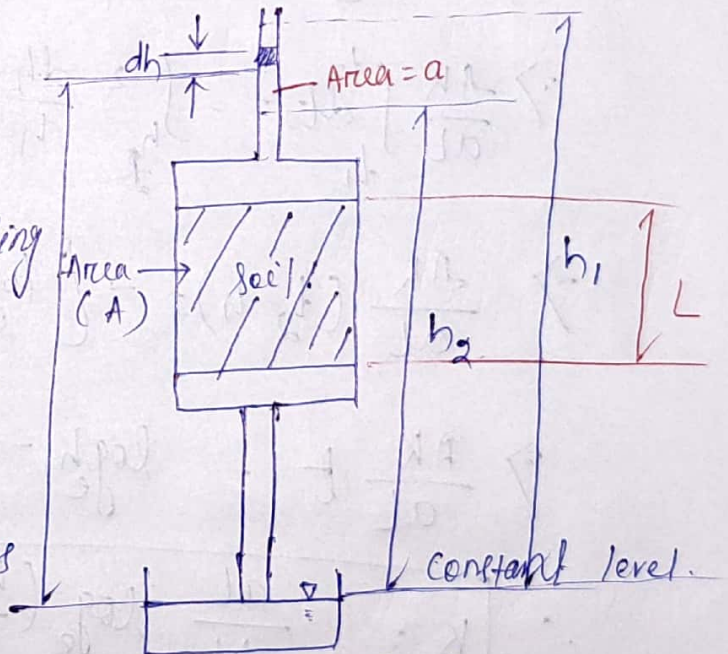 dh
Area = a
ing
Area
(A)
Soil
h1
h2
L
s
Constant level.